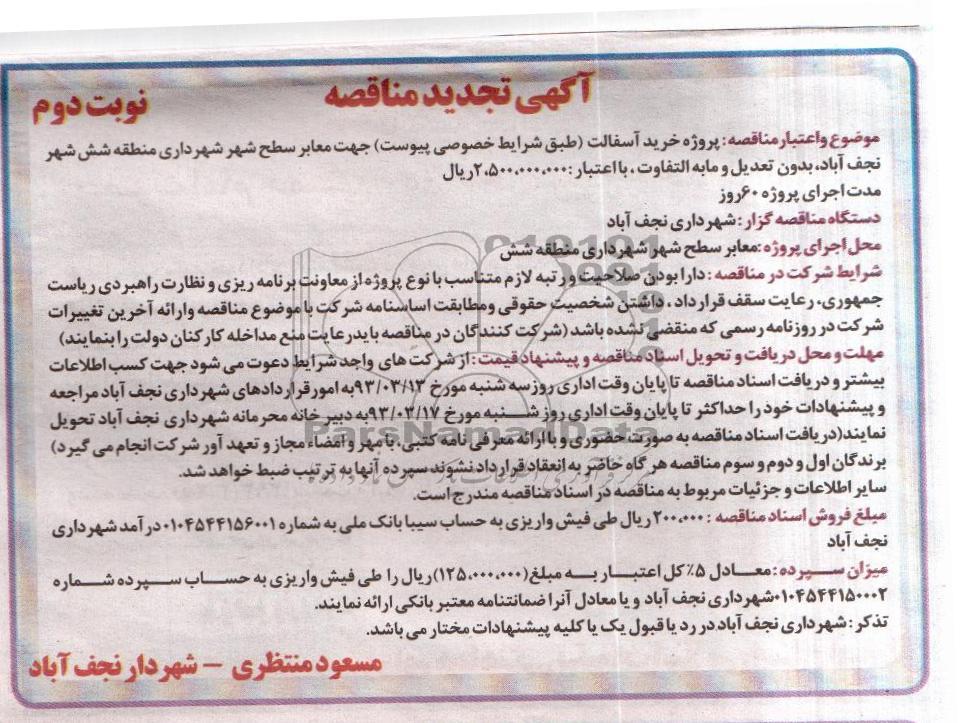 آگهی تجدید مناقصه
نوبت دوم
موضوع واعتبارمناقصه: پروژه خرید آسفالت (طبق شرایط خصوصی پیوست) جهت معابر سطح شهر شهرداری منطقه شش شهر
نجف آباد، بدون تعدیل و مابه التفاوت ، با اعتبار :۲،۵۰۰،۰۰۰،۰۰۰ریال
مدت اجرای پروژه ۶۰روز
دستگاه مناقصه گزار : شهرداری نجف آباد
محل اجرای پروژه :معابر سطح شهر شهرداری منطقه شش
شرایط شرکت در مناقصه : دارا بودن صلاحیت و رتبه لازم متناسب با نوع پروژه از معاونت برنامه ریزی و نظارت راهبردی ریاست
جمهوری، رعایت سقف قرارداد ، داشتن شخصیت حقوقی ومطابقت اساسنامه شرکت با موضوع مناقصه وارائه آخرین تغییرات
شرکت در روزنامه رسمی که منقضی نشده باشد (شرکت کنندگان در مناقصه باید رعایت منع مداخله کارکنان دولت را بنمایند)
مهلت و محل دریافت و تحویل اسناد مناقصه و پیشنهاد قیمت : از شرکت های واجد شرایط دعوت می شود جهت کسب اطلاعات
بیشتر و دریافت اسناد مناقصه تا پایان وقت اداری روز سه شنبه مورخ ۹۳/۰۳/۱۳به امور قراردادهای شهرداری نجف آباد مراجعه
و پیشنهادات خود را حداکثر تا پایان وقت اداری روز شنبه مورخ ۹۳/۰۳/۱۷به دبیر خانه محرمانه شهرداری نجف آباد تحویل
نمایند(دریافت اسناد مناقصه به صورت حضوری و با ارائه معرفی نامه کتبی، با مهر و امضاء مجاز و تعهد آور شرکت انجام می گیرد)
برندگان اول و دوم و سوم مناقصه هر گاه حاضر به انعقاد قرارداد نشوند سپرده آنها به ترتیب ضبط خواهد شد.
سایر اطلاعات و جزئیات مربوط به مناقصه در اسناد مناقصه مندرج است.
مبلغ فروش اسناد مناقصه : ۲۰۰،۰۰۰ ریال طی فیش واریزی به حساب سیبا بانک ملی به شماره ۰۱۰۴۵۴۴۱۵۶۰۰۱درآمد شهرداری
نجف آباد
میزان سپرده : معادل ۵٪ کل اعتبار به مبلغ(۱۲۵،۰۰۰،۰۰۰)ریال را طی فیش واریزی به حساب سپرده شماره
۰۱۰۴۵۴۴۱۵۰۰۰۲شهرداری نجف آباد و یا معادل آنرا ضمانتنامه معتبر بانکی ارائه نمایند.
تذکر : شهرداری نجف آباد در رد یا قبول یک یا کلیه پیشنهادات مختار می باشد.
مسعود منتظری – شهردار نجف آباد
ParsNamadData